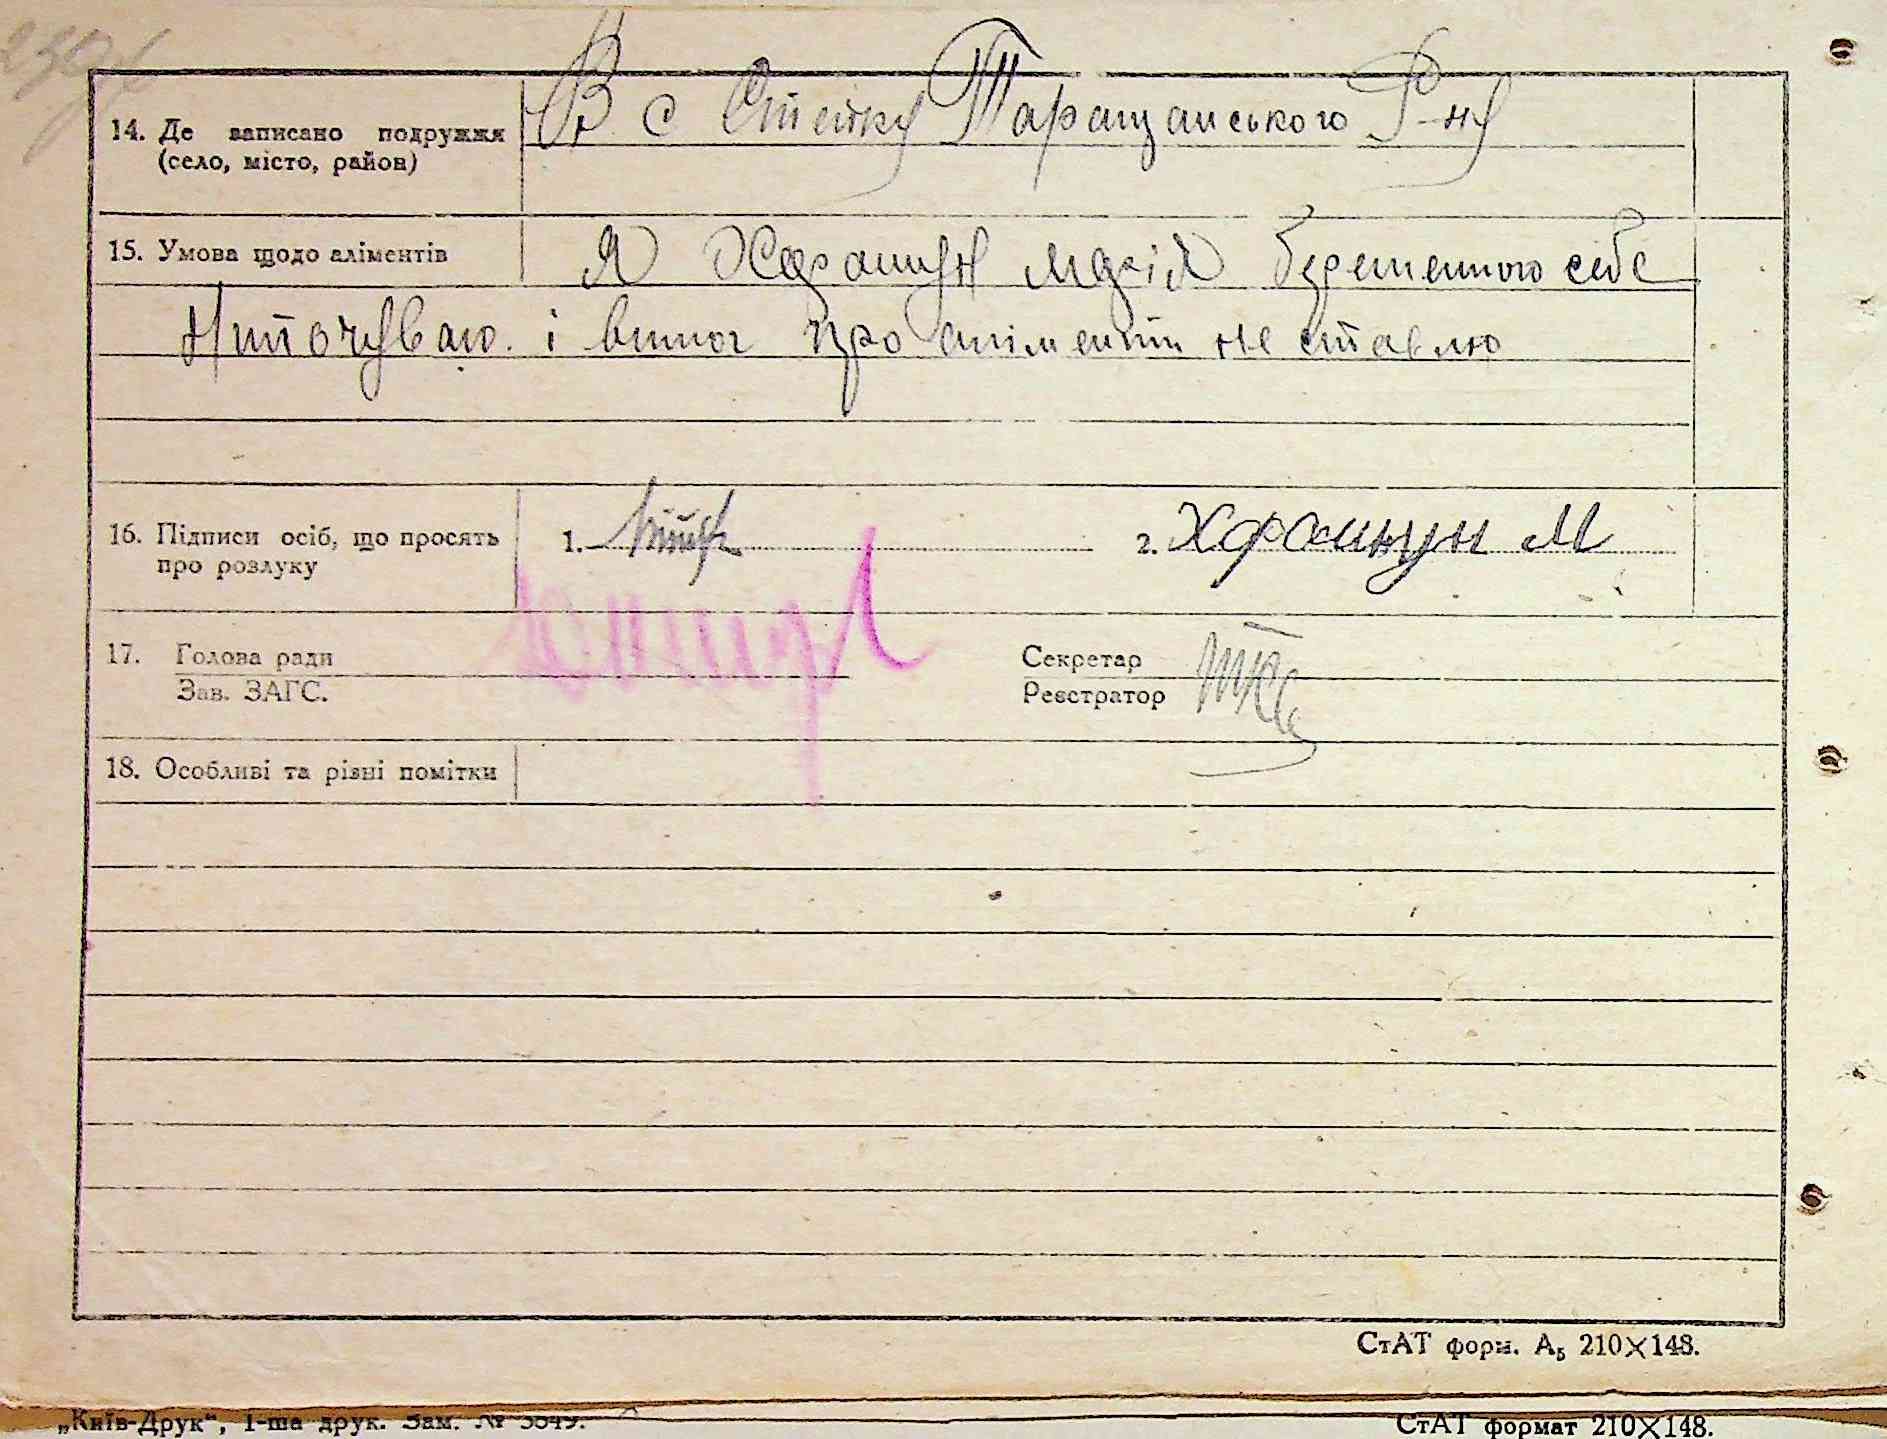 14. Де записано подружжя
(село, місто, район)
В с Степку Таращанського Р-ну
15. Умова щодо аліментів
Я Харашун марія беременного себе
Нипочуваю. і вимог про аліменти не ставлю
16. Підписи осіб, що просять
про розлуку
1.
2. Харашнун М
17. Голова ради
Зав. ЗАГС.
Секретар
Реєстратор
18. Особливі та різні помітки
СтАТ форм. А5 210×148.
„Київ-Друк“, 1-ша друк. Зам. № 3549.
СтАТ формат 210×148.